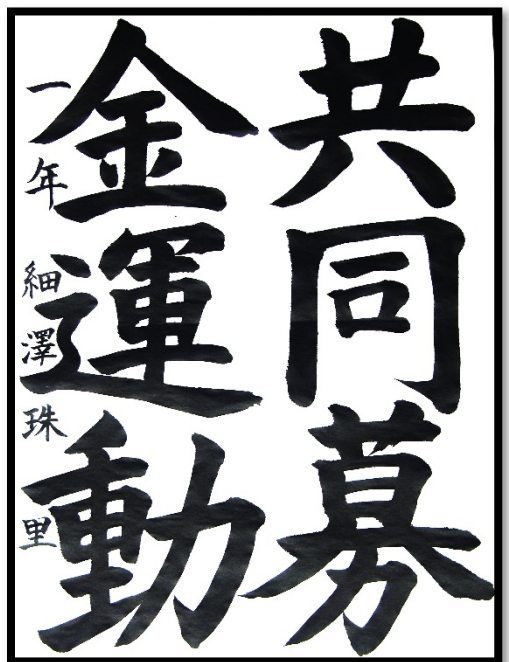 共同募
金運動
一年 細澤珠里